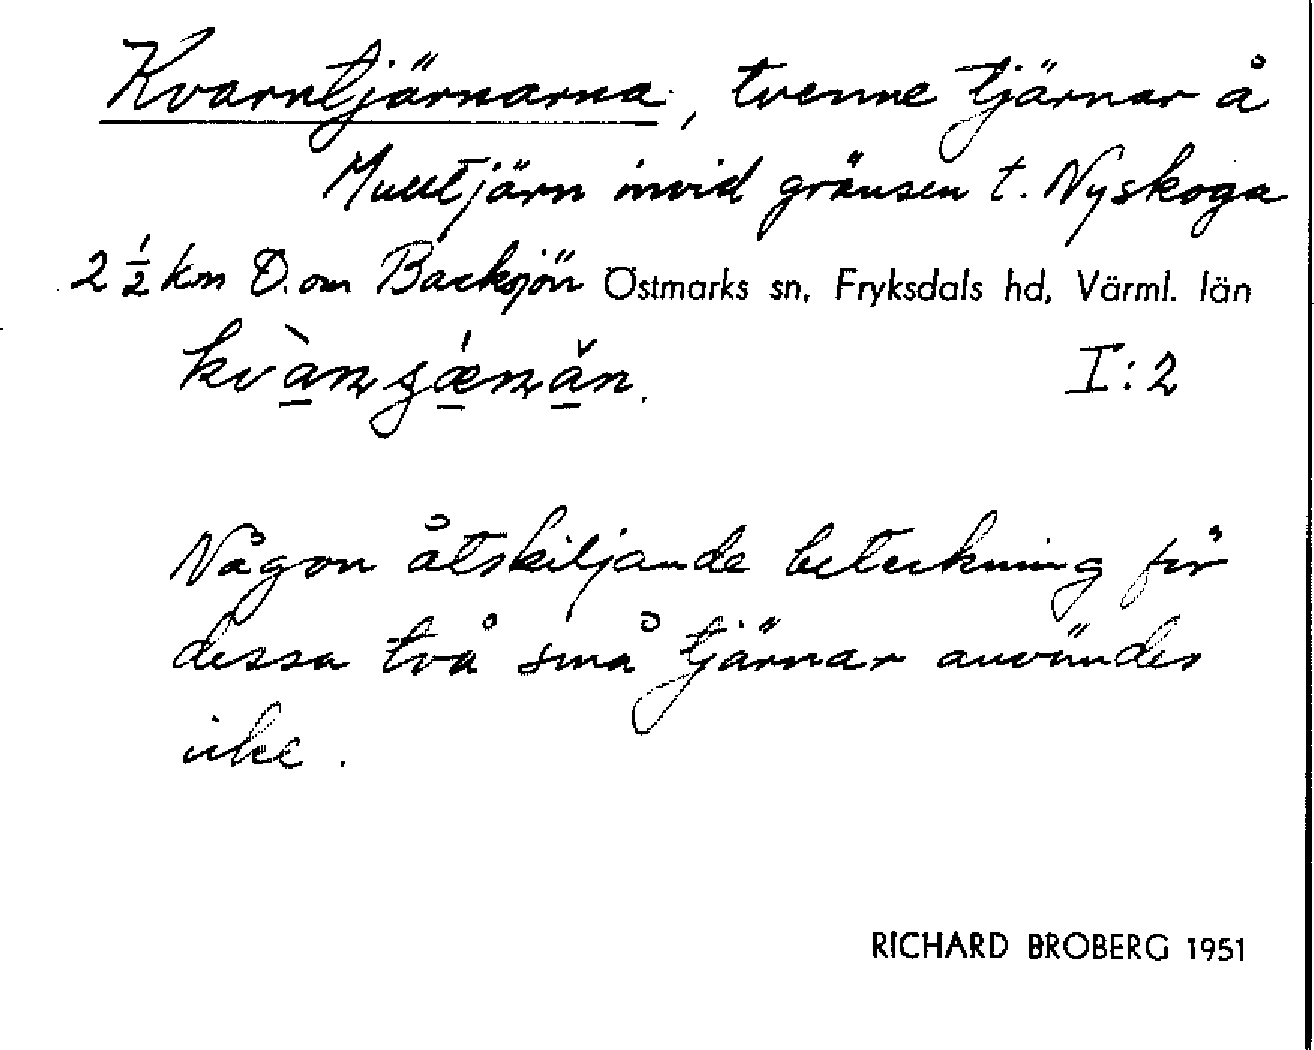 Kvarntjärnarna, tvenne tjärnar å
Mulltjärn invid gränsen t. Nyskoga
2 ½ km O. om Backsjön Östmarks sn, Fryksdals hd, Värml. län
I:2
Någon åtskiljande beteckning för
dessa två små tjärnar användes
icke.
RICHARD BROBERG 1951